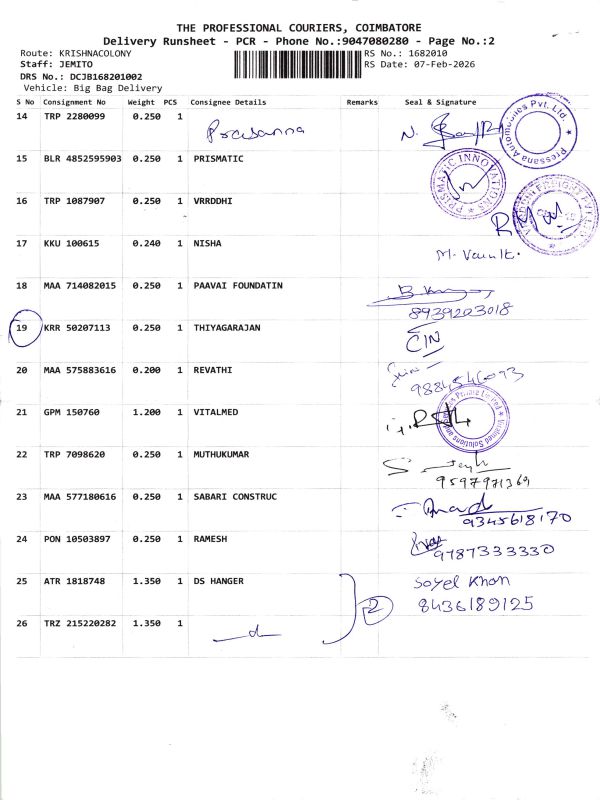 THE PROFESSIONAL COURIERS, COIMBATORE
Delivery Runsheet - PCR - Phone No.:9047080280 - Page No.:2
Route: KRISHNACOLONY RS No.: 1682010
Staff: JEMITO RS Date: 07-Feb-2026
DRS No.: DCJB168201002
Vehicle: Big Bag Delivery
S No Consignment No Weight PCS Consignee Details Remarks Seal & Signature
14 TRP 2280099 0.250 1 Prasanna N.
Pressana Automobiles Pvt. Ltd.
15 BLR 4852595903 0.250 1 PRISMATIC
PRISMATIC INNOVATIONS
16 TRP 1087907 0.250 1 VRRDDHI
17 KKU 100615 0.240 1 NISHA
18 MAA 714082015 0.250 1 PAAVAI FOUNDATIN
8939203018
19 KRR 50207113 0.250 1 THIYAGARAJAN
20 MAA 575883616 0.200 1 REVATHI
9884546093
21 GPM 150760 1.200 1 VITALMED
22 TRP 7098620 0.250 1 MUTHUKUMAR
9597971369
23 MAA 577180616 0.250 1 SABARI CONSTRUC
9345618170
24 PON 10503897 0.250 1 RAMESH
9787333330
25 ATR 1818748 1.350 1 DS HANGER Soyel Khan
2 8436189125
26 TRZ 215220282 1.350 1